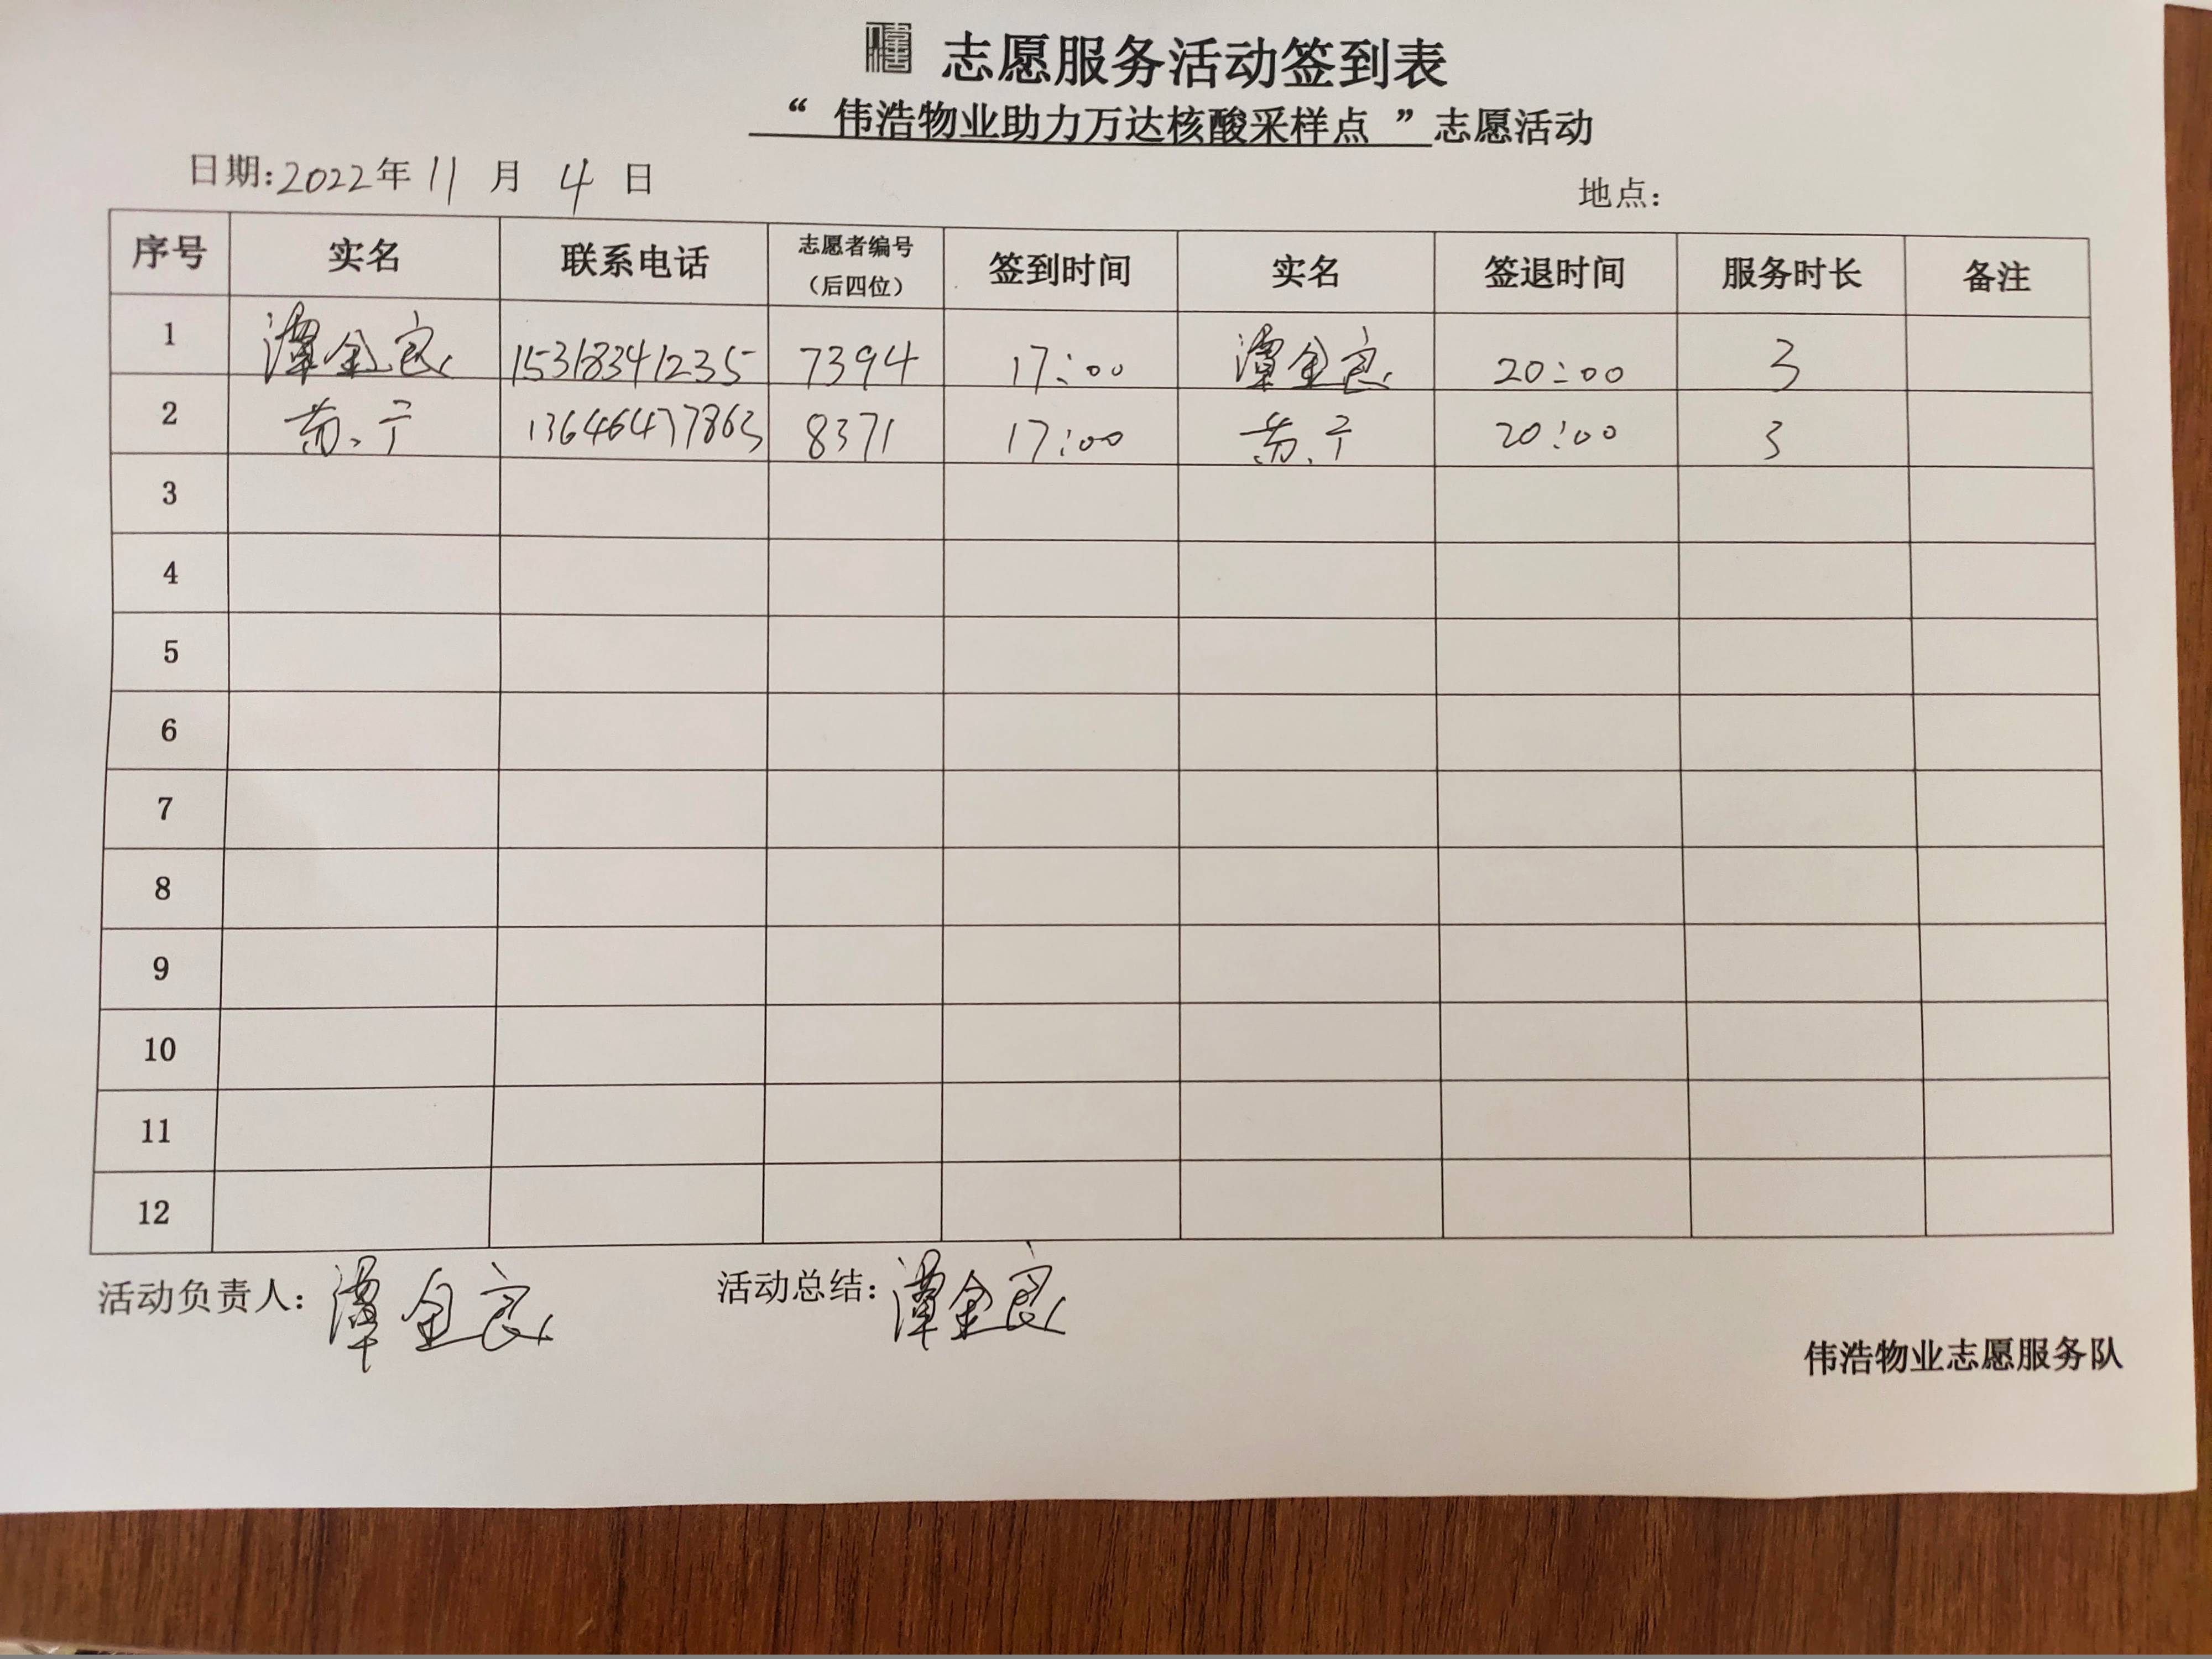 志愿服务活动签到表
“ 伟浩物业助力万达核酸采样点 ”志愿活动
日期:2022年11月4日 地点:
序号 实名 联系电话 志愿者编号（后四位） 签到时间 实名 签退时间 服务时长 备注
1 潭金良 15318341235 7394 17:00 潭金良 20:00 3
2 黄宁 13646477863 8371 17:00 黄宁 20:00 3
3
4
5
6
7
8
9
10
11
12
活动负责人: 潭金良 活动总结: 潭金良
伟浩物业志愿服务队